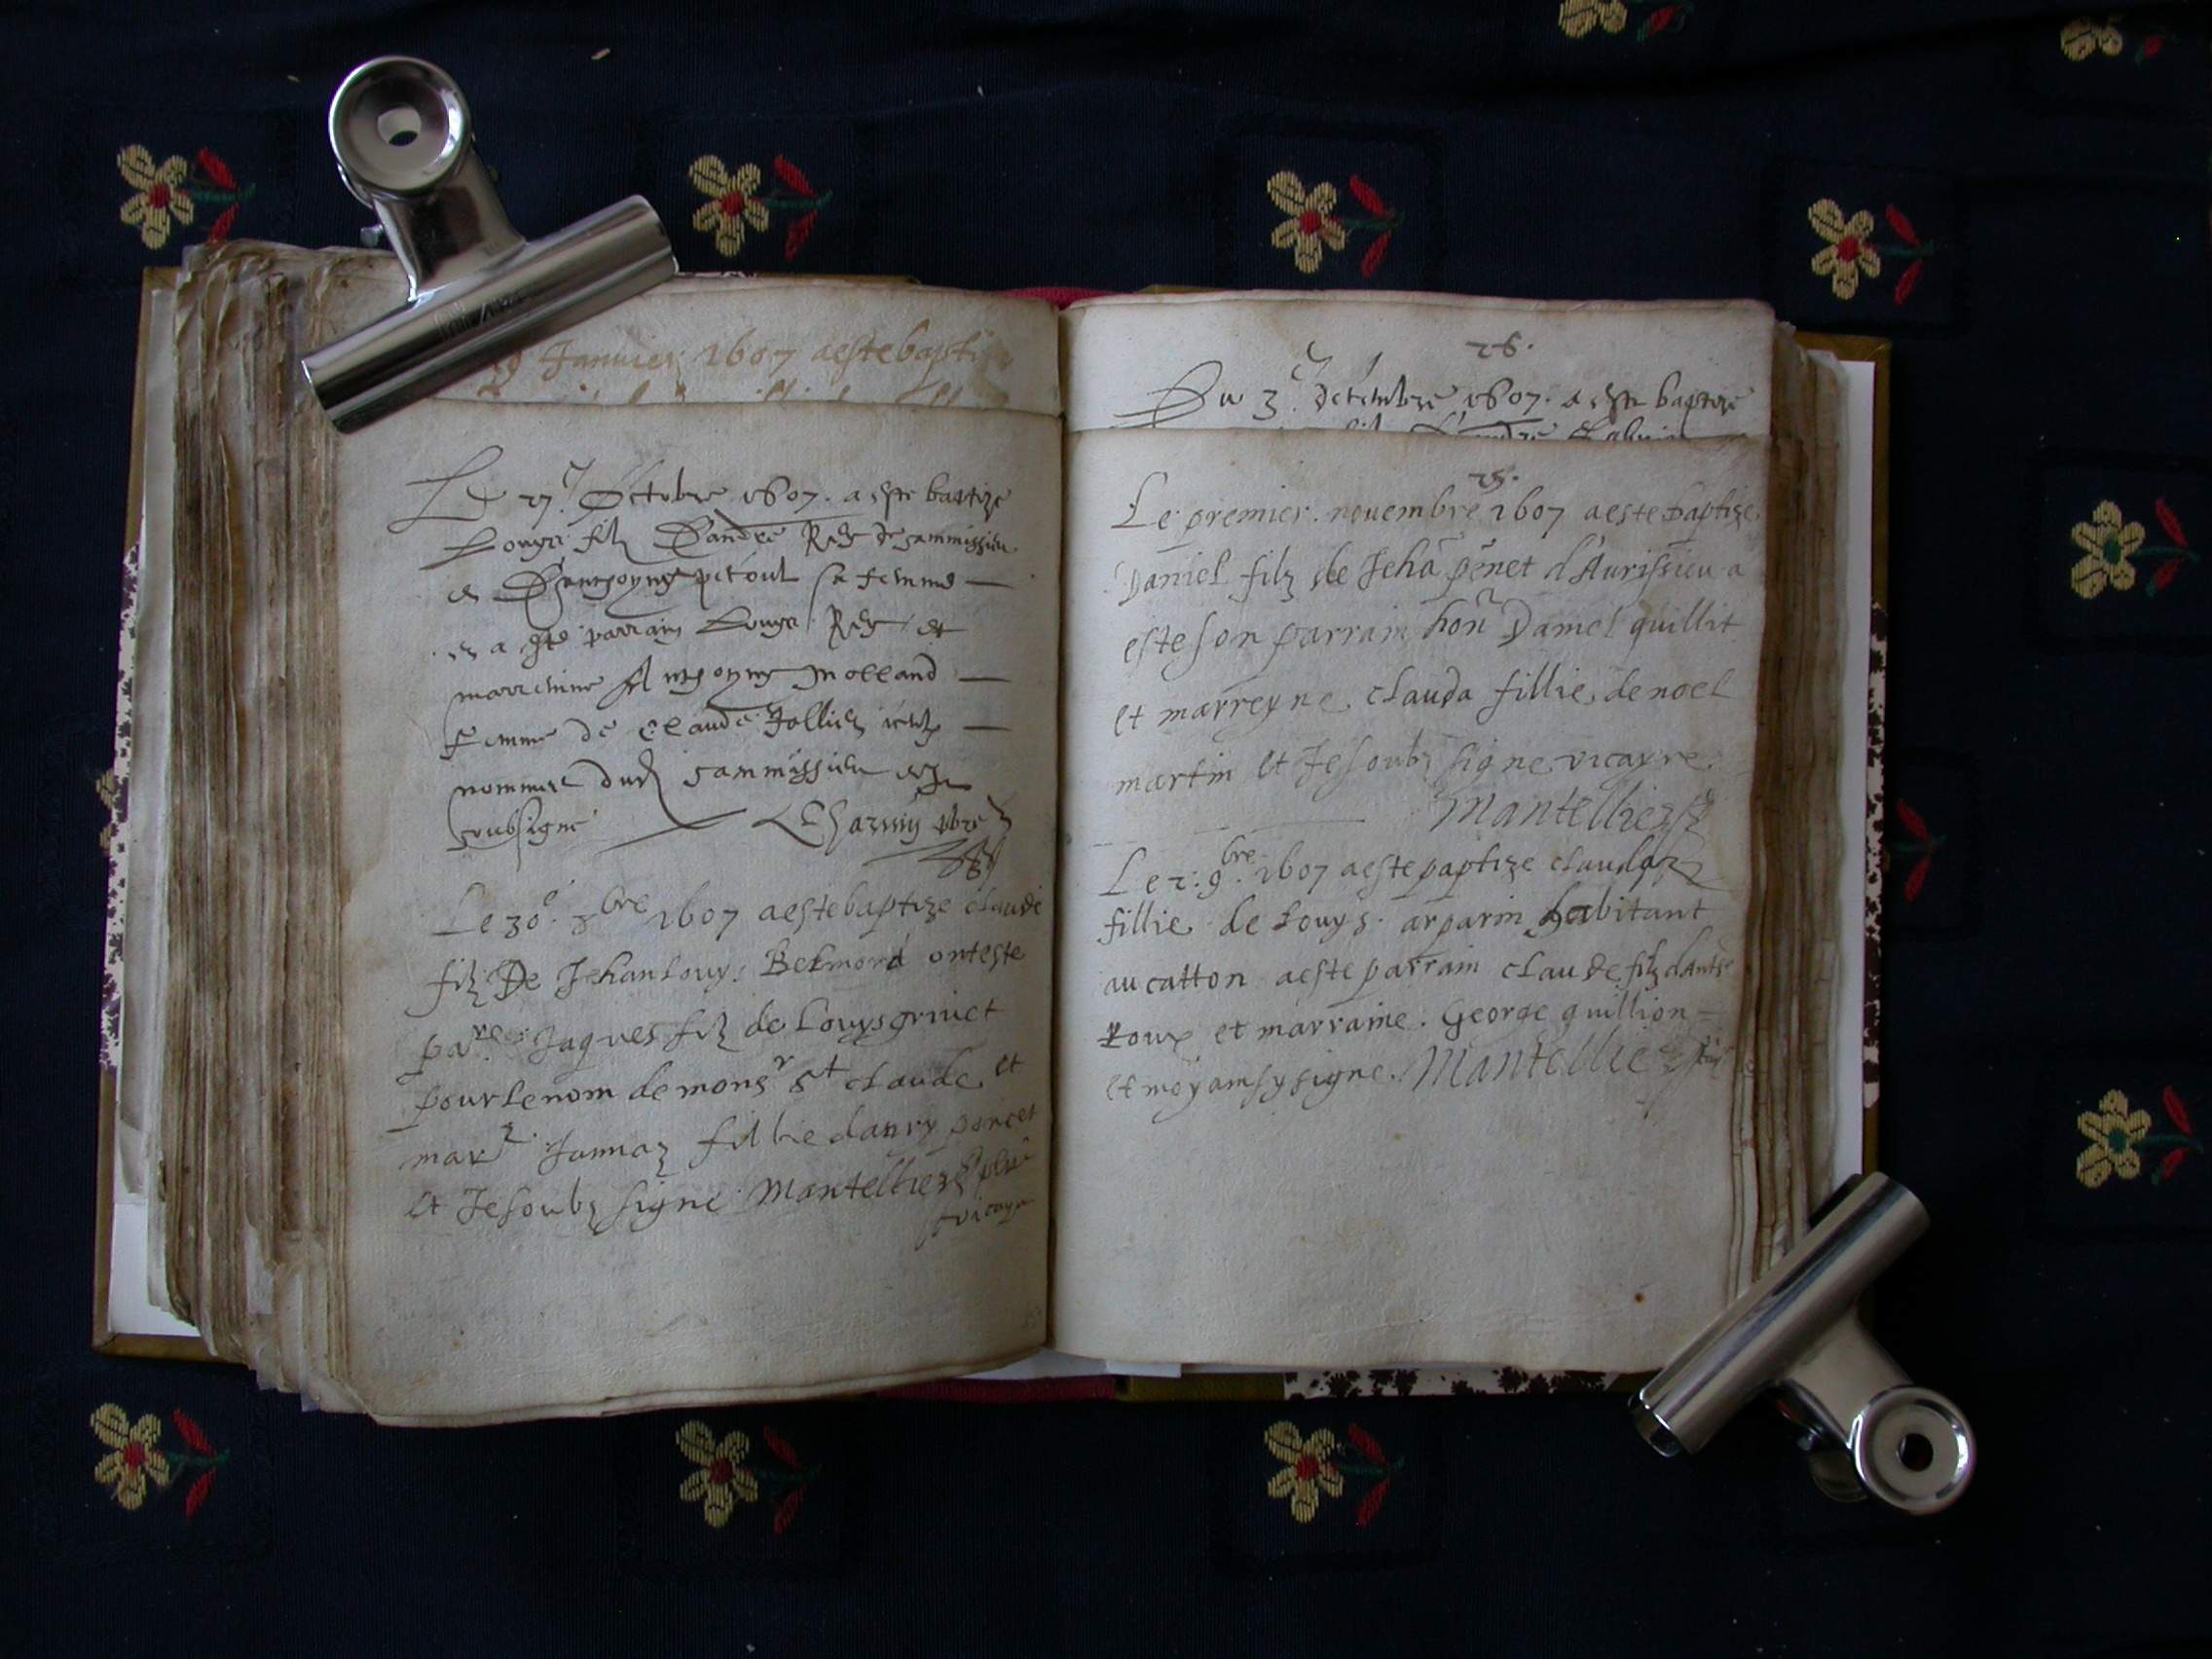 Janvier 1607 a este bapti
Le 27e Octobre 1607. a este baptize
Louys filz Dandre Rey de Sammissieu
et Danthoyne pitoul sa femme
et a este parrain Louys Rey et
marreinne Anthoyne Molland
femme de Claude Jollier
nommee dud Sammissieu et Je
soubsigne Charvin pbre
Le 30e. 8bre 1607 a este baptize claude
filz De Jehan Louys Belmond ont este
par. Jaques filz de Louys grivet
pour le nom de monsr St claude et
marr Jannaz fillie danry poncet
et Je soubz signe Mantellier pbre
vicayre
26.
Du 3e. decembre 1607. a este baptize
25.
Le premier novembre 1607 a este baptize
Daniel filz de Jehā penet d'Aurissieu a
este son parrain hon Daniel quillit
et marreyne clauda fillie de noel
martin et Je soubz signe vicayre.
Mantellier
Le 2. 9bre. 1607 a este paptize claudaz
fillie de Louys arparin habitant
au catton a este parrain claude filz dAnthe
Roux et marraine. George guillion
et moy ainsy signe. Mantellier